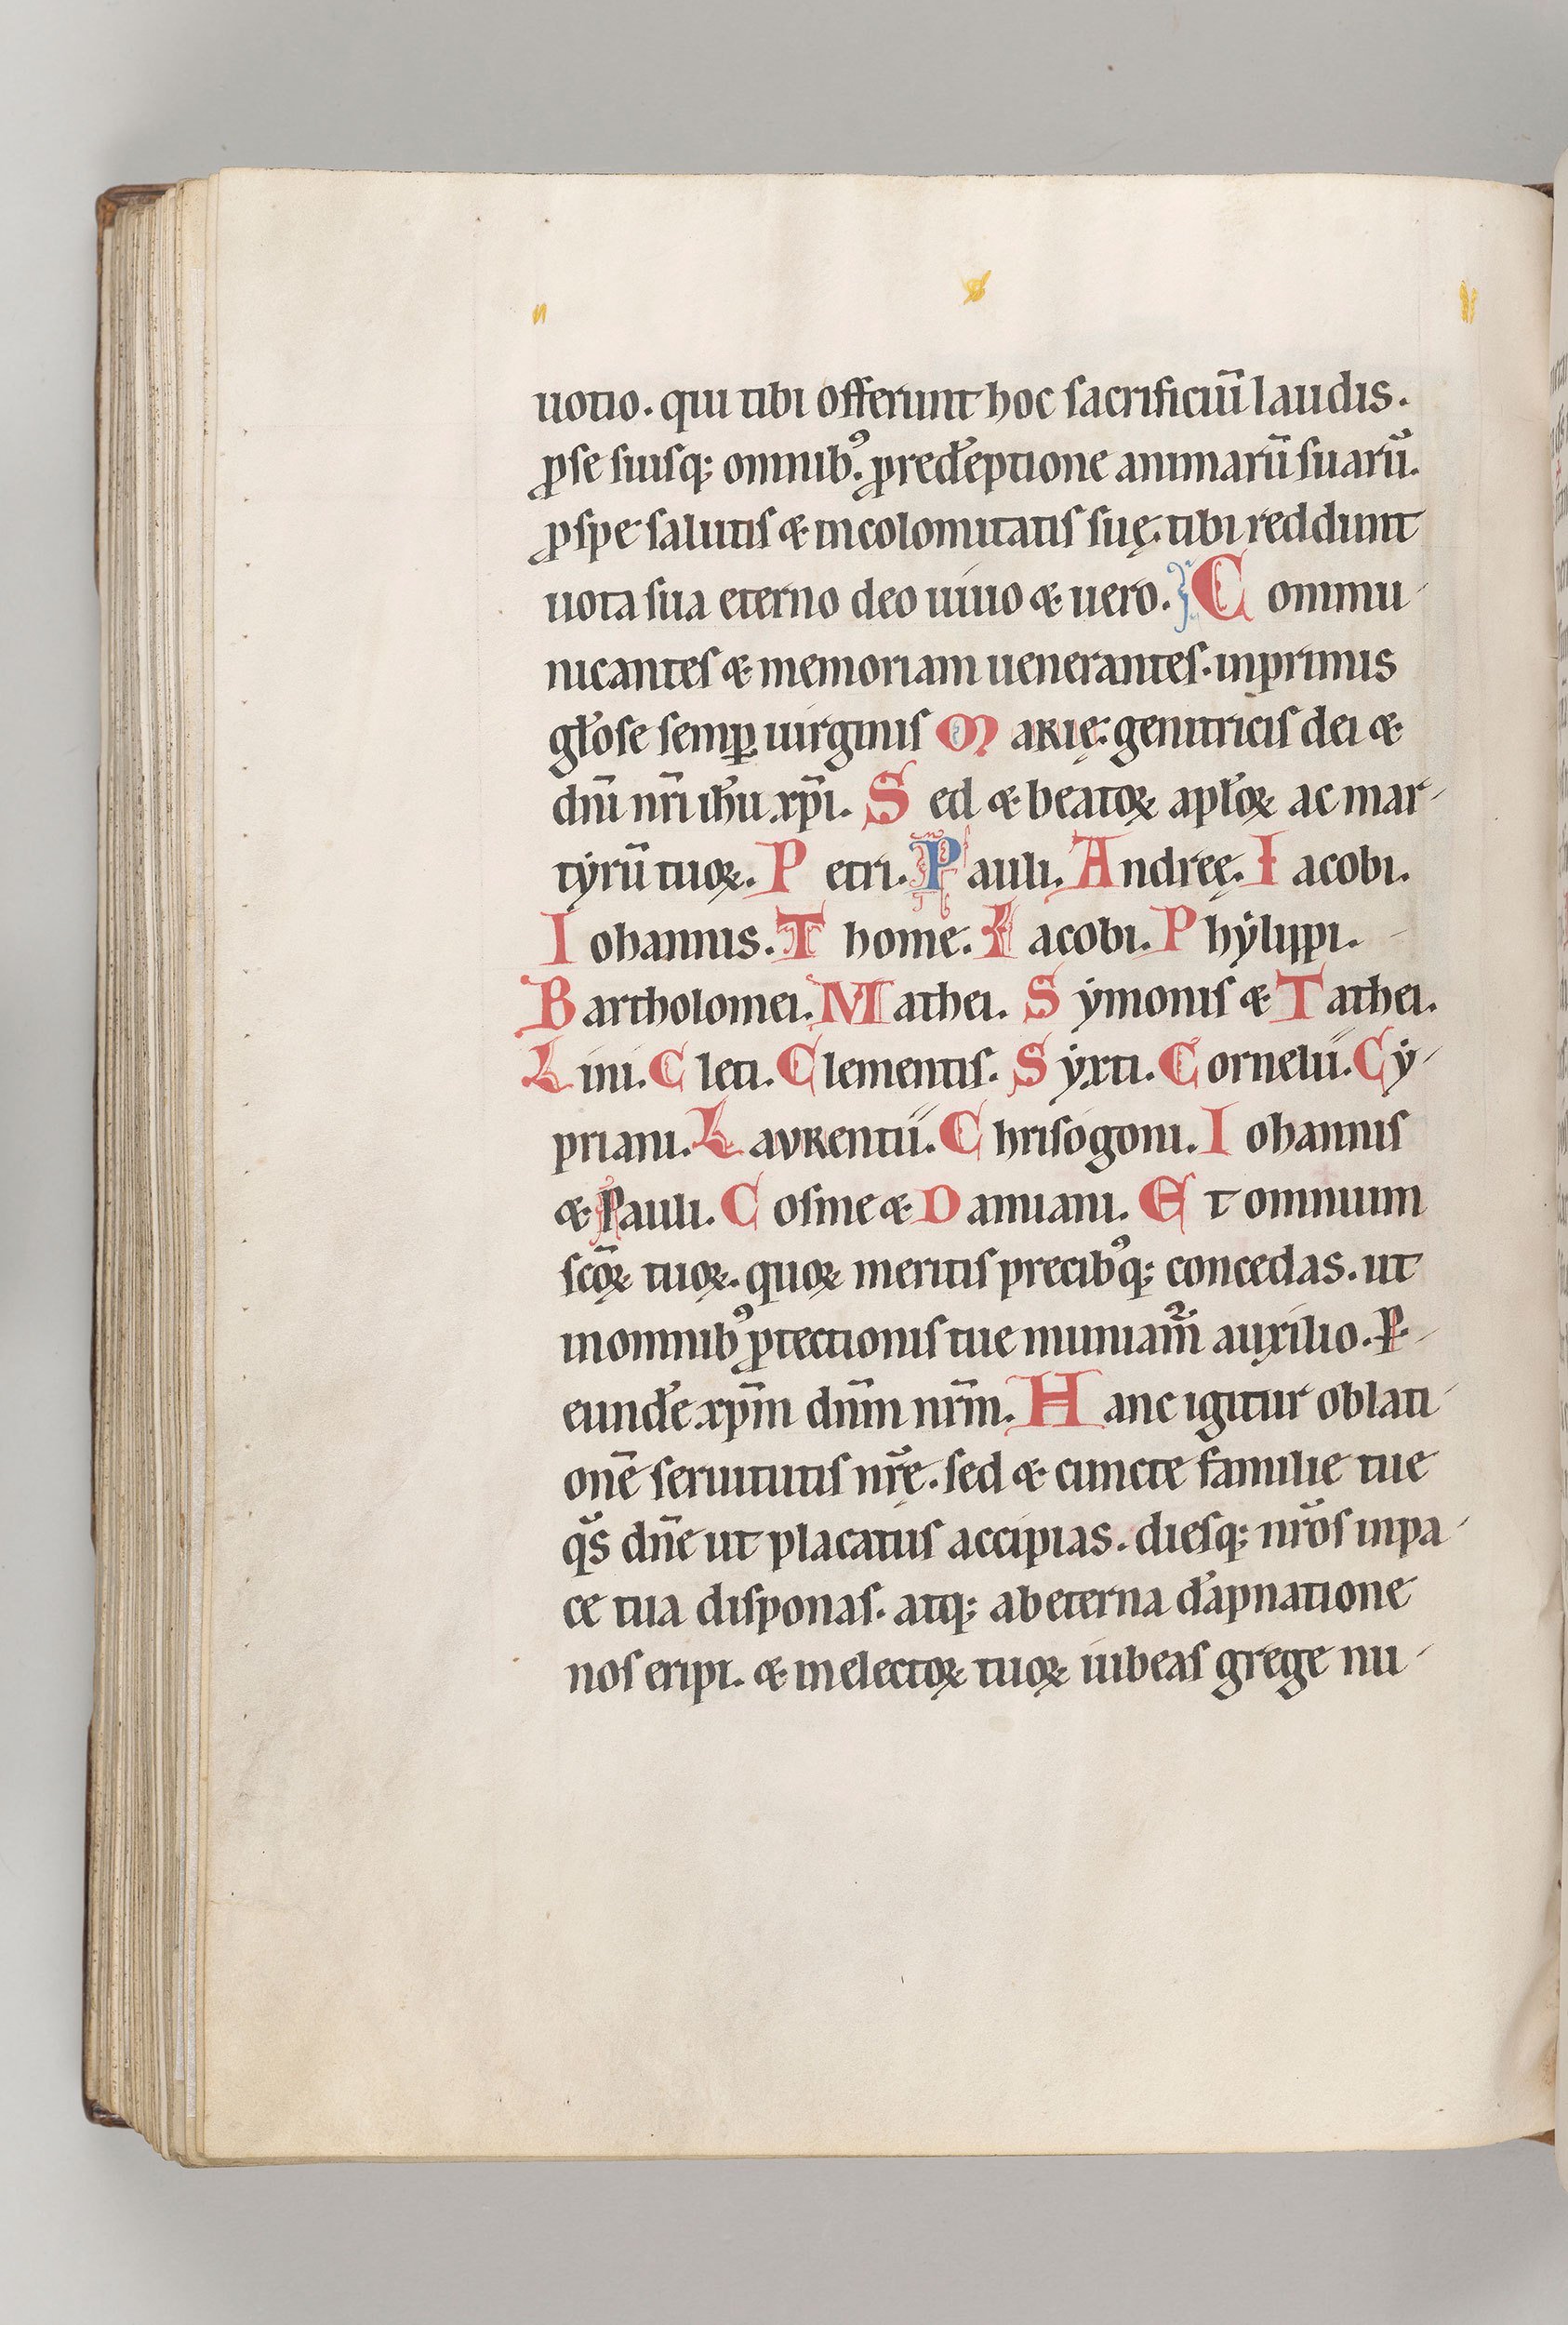 uotio. qui tibi offerunt hoc sacrificiū laudis.
ꝓse suisq; omnibꝰ. ꝓ red̄eptione animarū suarū.
ꝓ spe salutis & incolomitatis suę. tibi reddunt
uota sua eterno deo uiuo & uero. Commu-
nicantes & memoriam uenerantes. inprimis
gl̄ose semꝑ uirginis Marię. genitricis dei &
dn̄i nr̄i ih̄u xp̄i. Sed & beatoꝝ apl̄oꝝ ac mar-
tyrū tuoꝝ. Petri. Pauli. Andreę. Iacobi.
Iohannis. Thome. Iacobi. Phylippi.
Bartholomei. Mathei. Symonis & Tathei.
Lini. Cleti. Clementis. Syxti. Cornelii. Cy-
priani. Laurentii. Chrisogoni. Iohannis
& Pauli. Cosme & Damiani. Et omnium
sc̄oꝝ tuoꝝ. quoꝝ meritis precibꝰq; concedas. ut
in omnibꝰ ꝓtectionis tue muniam̄ auxilio. P-
eund̄e xp̄m dn̄m nr̄m. Hanc igitur oblati-
onē seruitutis nr̄ę. sed & cuncte familie tue
qs̄ dn̄e ut placatus accipias. diesq; nr̄os in pa-
ce tua disponas. atq; ab eterna d̄apnatione
nos eripi. & in electoꝝ tuoꝝ iubeas grege nu-